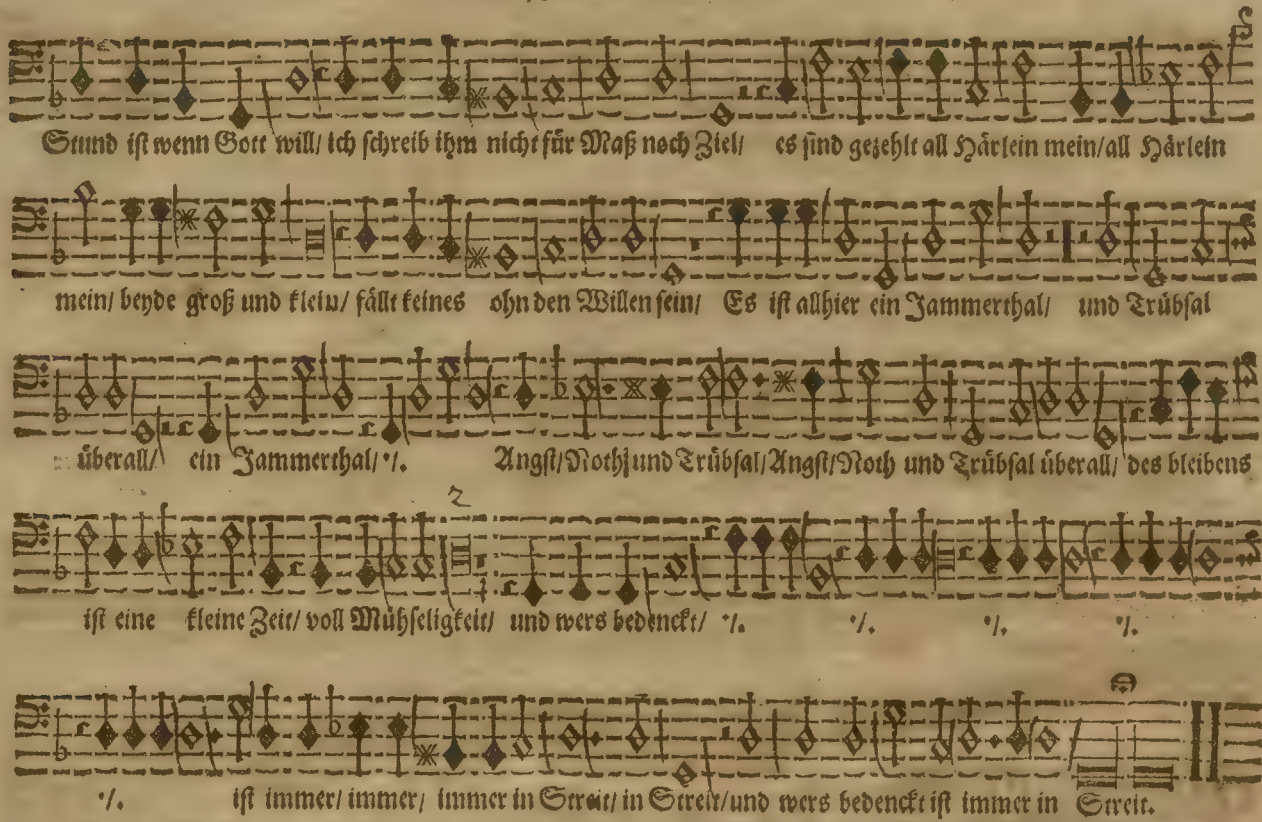 Stund ist wenn Gott will/ ich schreib ihm nicht für Maß noch Ziel/ es sind gezehlt all Härlein mein/ all Härlein
mein/ beyde groß und klein/ fällt keines ohn den Willen sein/ Es ist allhier ein Jammerthal/ und Trübsal
überall/ ein Jammerthal/ ·/. Angst/ Noth und Trübsal/ Angst/ Noth und Trübsal überall/ des bleibens
2
ist eine kleine Zeit/ voll Mühseligkeit/ und wers bedenckt/ ·/. ·/. ·/. ·/.
·/. ist immer/ immer/ immer in Streit/ in Streit/ und wers bedenckt ist immer in Streit.